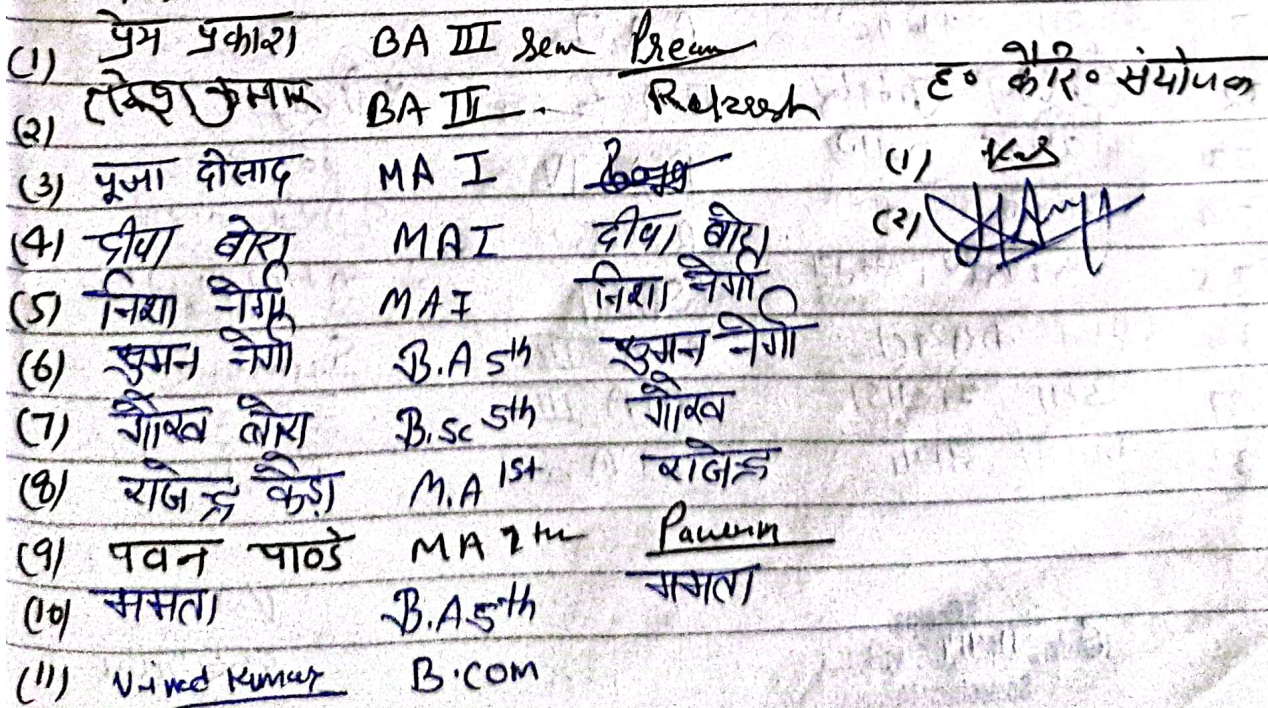 (1) प्रेम प्रकाश BA III sem Prem
ह० कौरि० संयोजक
(2) राकेश कुमार BA III. Rakeesh
(3) पूजा दोसाद MA I Pooja
(1) KS
(4) दीपा बोरा MA I दीपा बोरा
(2)
(5) निशा नेगी MA I निशा नेगी
(6) सुमन नेगी B.A 5th सुमन नेगी
(7) गौरव बोरा B.Sc 5th गौरव
(8) राजेन्द्र कैड़ा M.A 1st राजेन्द्र
(9) पवन पाण्डे MA Pawan
(10) ममता B.A 5th ममता
(11) Vinod Kumar B.COM